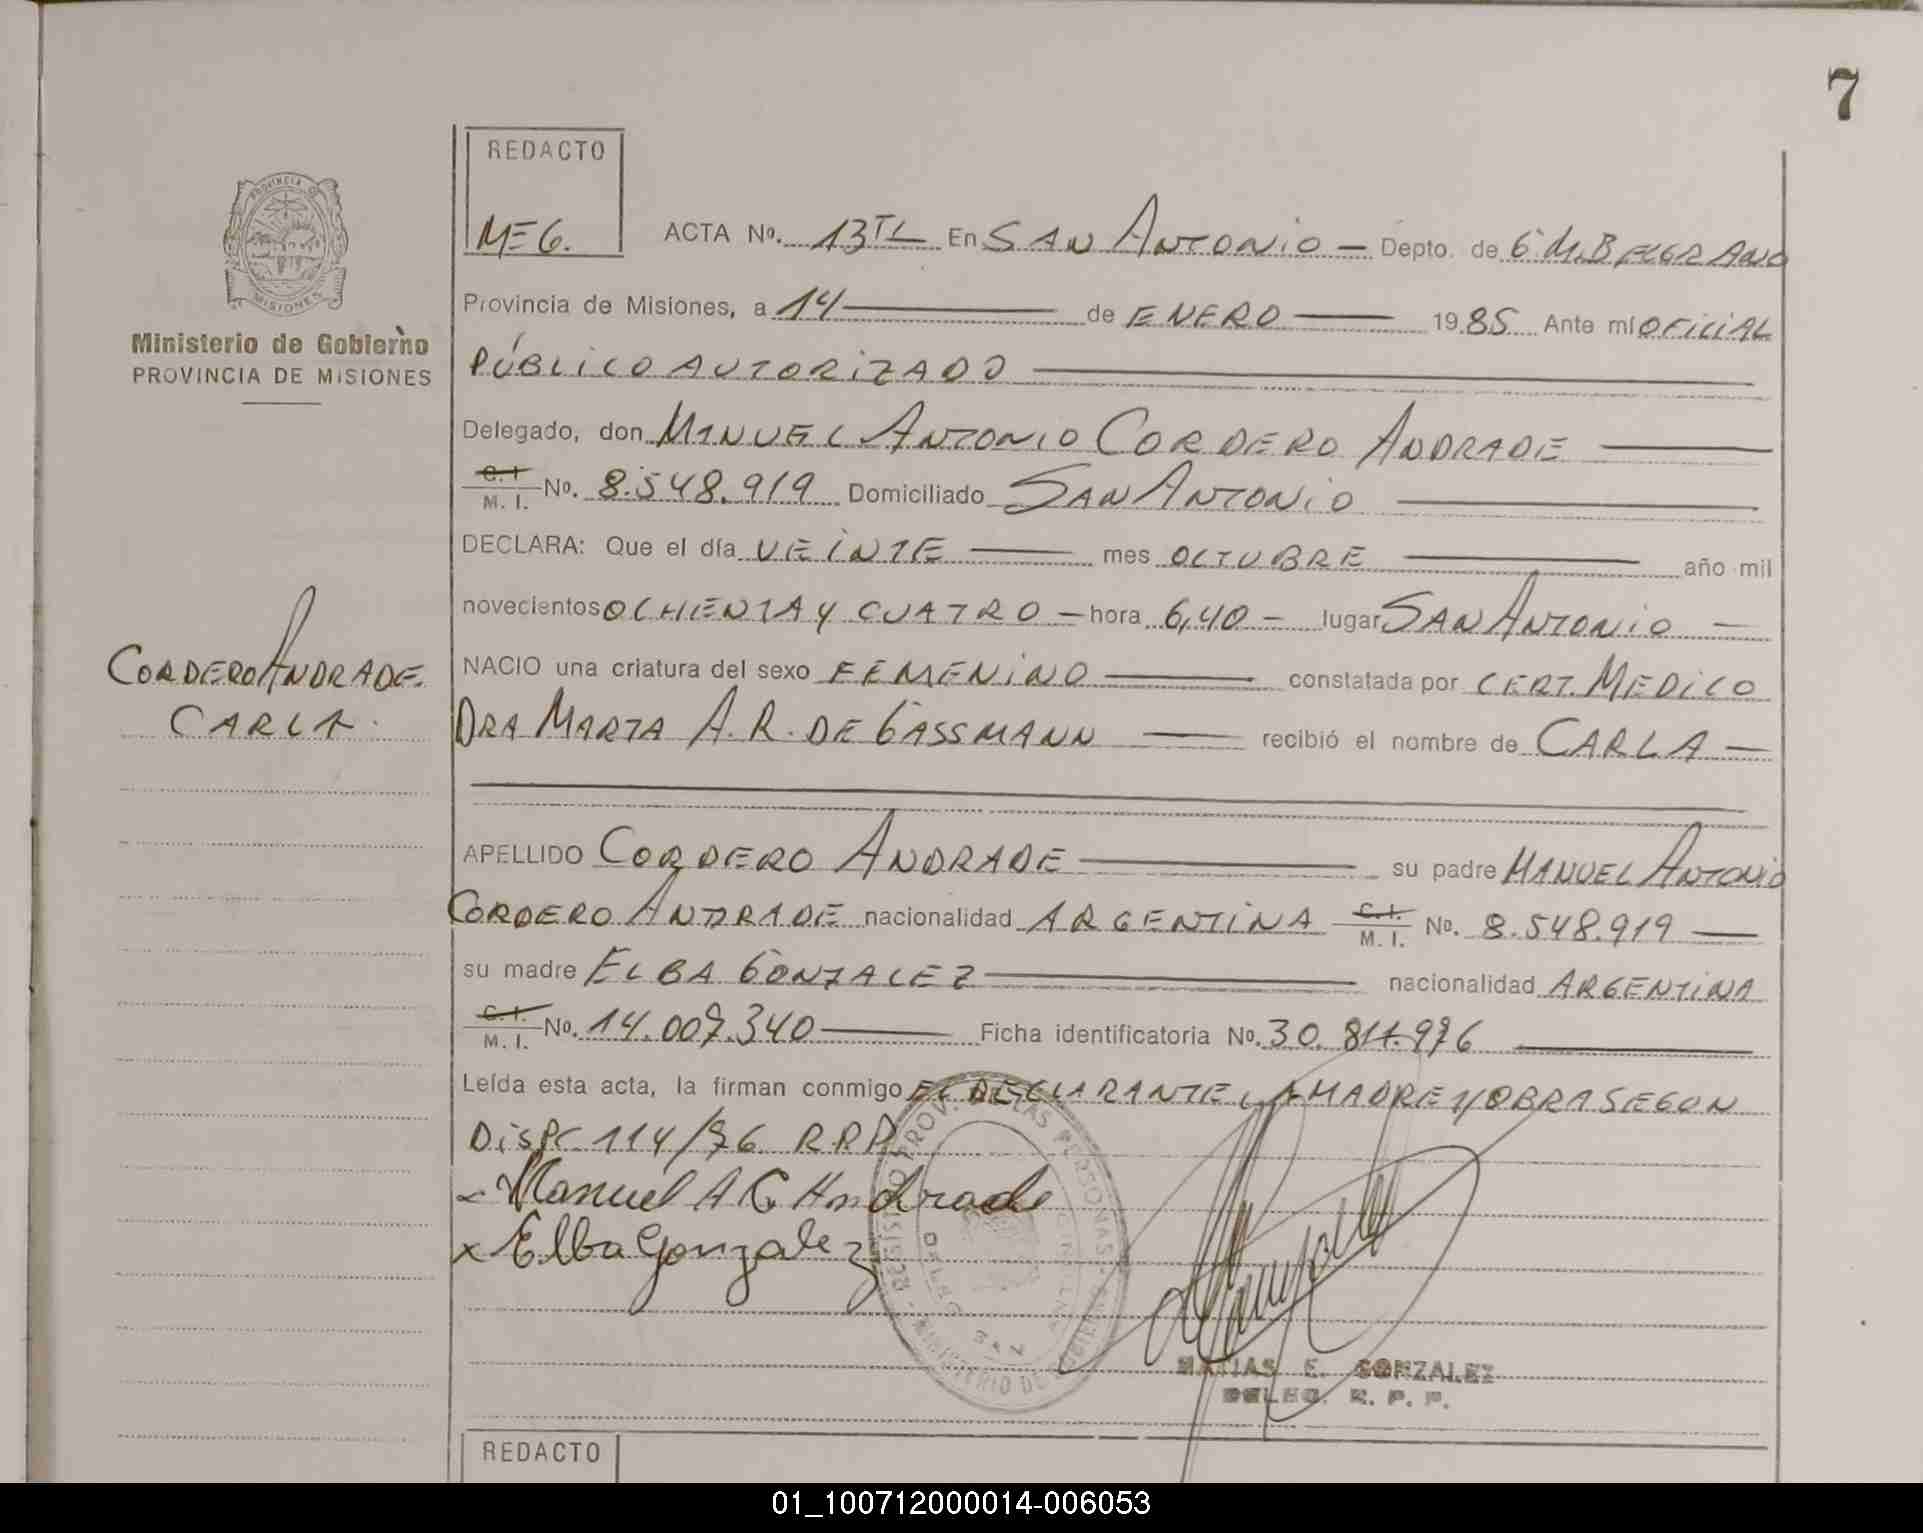 7
REDACTO
MEG.
PROVINCIA D
MISIONES
Ministerio de Gobierno
PROVINCIA DE MISIONES
ACTA Nº. 13TL En SAN ANTONIO — Depto. de G M. BELGRANO
Provincia de Misiones, a 14 — de ENERO — 1985 Ante mí OFICIAL
PÚBLICO AUTORIZADO
Delegado, don MANUEL ANTONIO CORDERO ANDRADE
C. I. M. I. Nº. 8.548.919 Domiciliado SAN ANTONIO
DECLARA: Que el día VEINTE — mes OCTUBRE — año mil
novecientos OCHENTA Y CUATRO — hora 6,40 — lugar SAN ANTONIO —
CORDERO ANDRADE.
CARLA.
NACIO una criatura del sexo FEMENINO — constatada por CERT. MEDICO
DRA MARTA A. R. DE GASSMANN — recibió el nombre de CARLA —
APELLIDO CORDERO ANDRADE — su padre MANUEL ANTONIO
CORDERO ANDRADE nacionalidad ARGENTINA C. I. M. I. Nº. 8.548.919 —
su madre ELBA GONZALEZ — nacionalidad ARGENTINA
C. I. M. I. Nº. 14.007.340 — Ficha identificatoria Nº. 30.811.976 —
Leída esta acta, la firman conmigo EL DECLARANTE LA MADRE Y OBRA SEGUN
DISPC 114/76 R.R.P
Manuel A C Andrade
x Elba Gonzalez
REGISTRO PROV. DE LAS PERSONAS
MINISTERIO DE GOBIERNO
MATIAS E. GONZALEZ
DELEG. R. P. P.
REDACTO
01_100712000014-006053